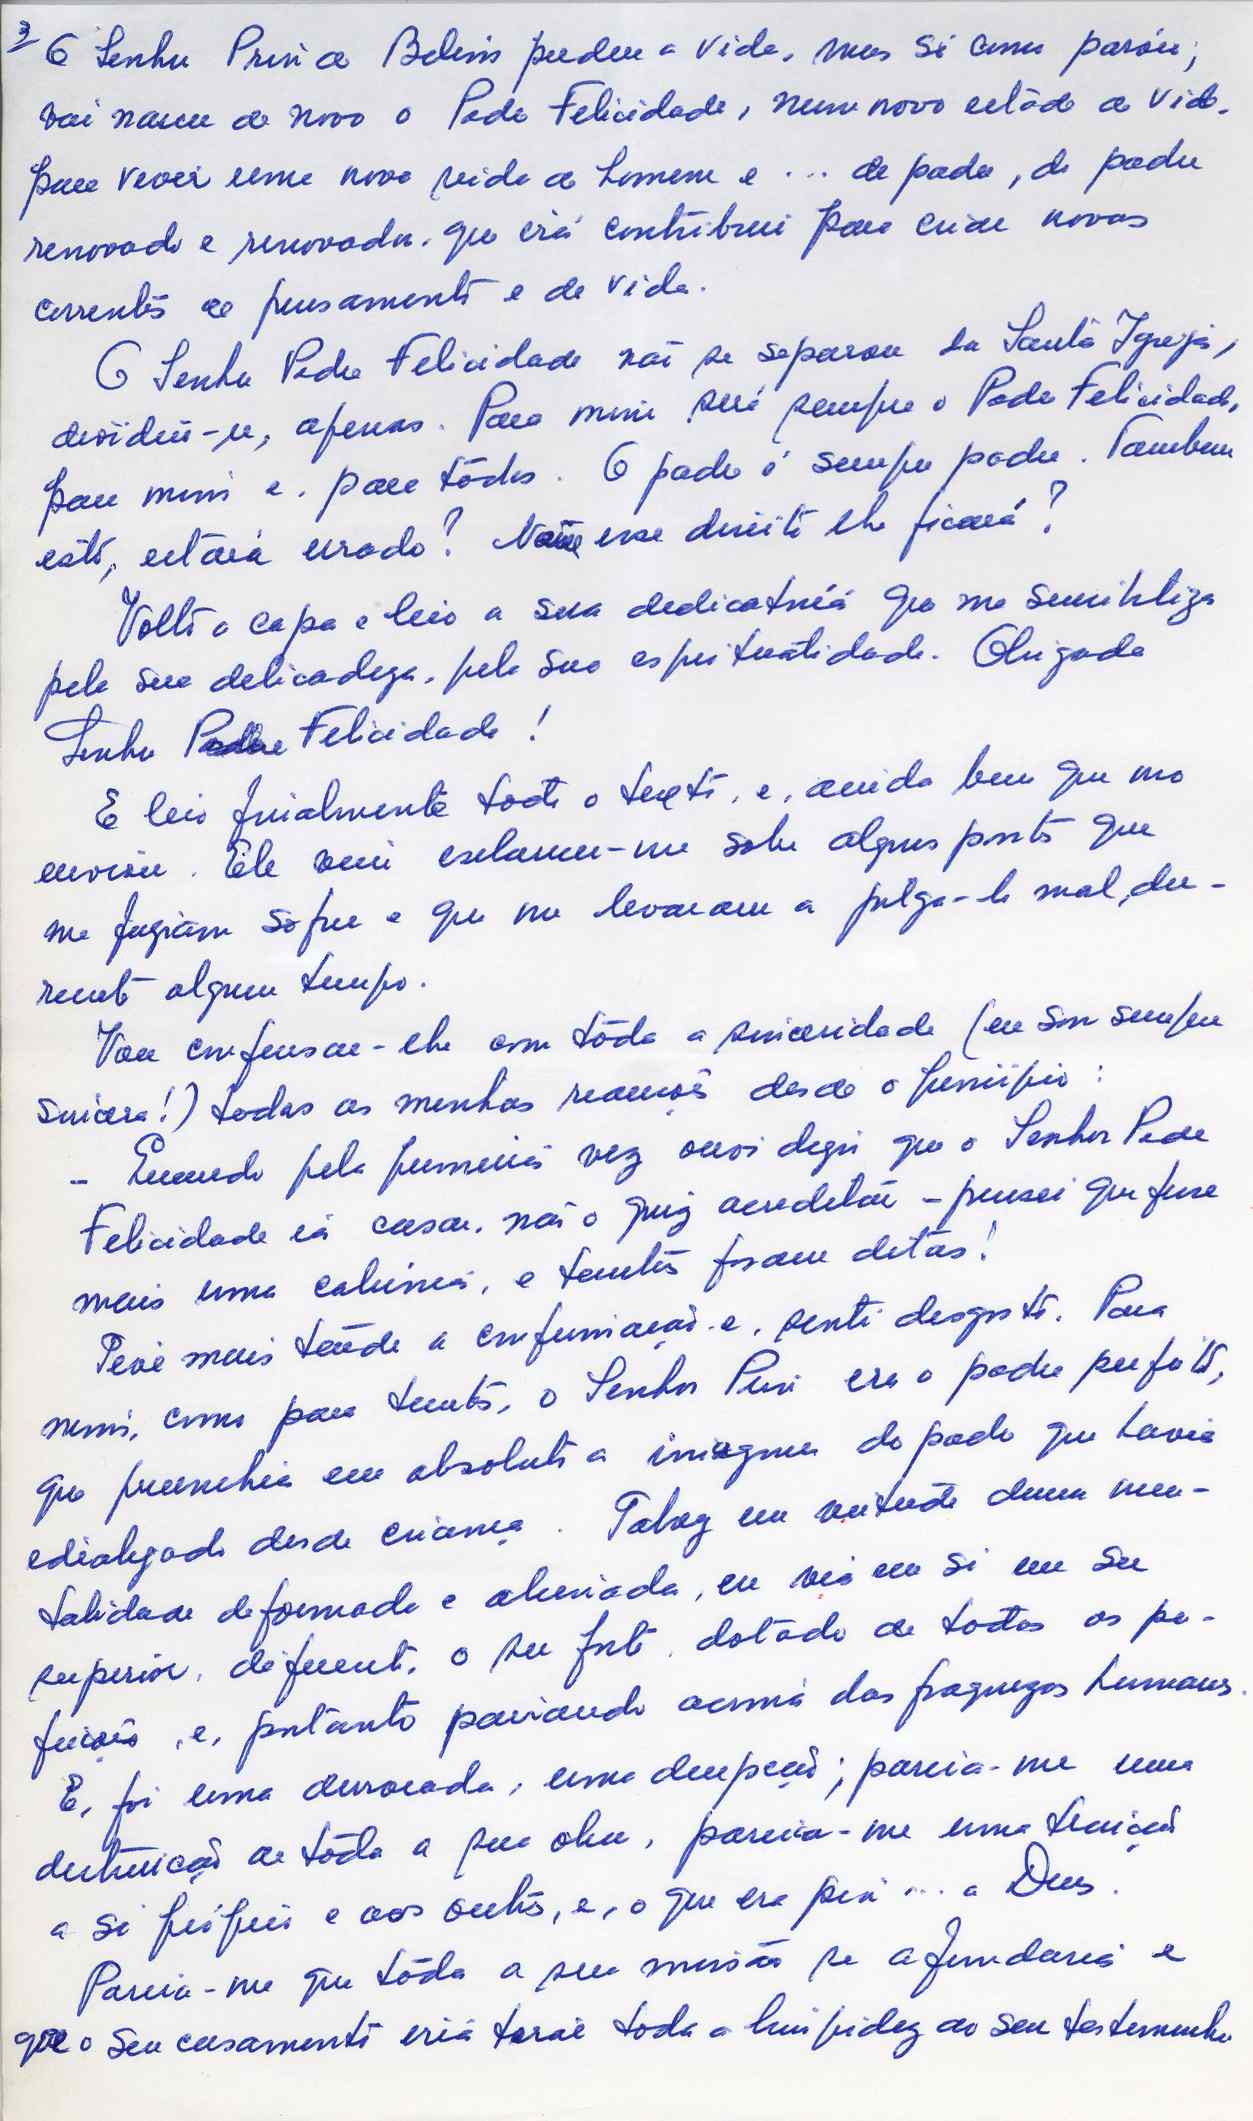 3
O Senhor Prior de Belém perdeu a vida, mas só como pároco;
vai nascer de novo o Padre Felicidade, num novo estado de vida.
para viver uma nova vida de homem e ... de padre, de padre
renovado e renovador, que irá contribuir para criar novas
correntes de pensamento e de vida.
O Senhor Padre Felicidade não se separou da Santa Igreja,
dividiu-se, apenas. Para mim será sempre o Padre Felicidade,
para mim e, para todos. O padre é sempre padre. Também
está, estará errado? Nem esse direito lhe ficará?
Volto a capa e leio a sua dedicatória que me sensibiliza
pela sua delicadeza, pela sua espiritualidade. Obrigada
Senhor Padre Felicidade!
E leio finalmente todo o texto, e, ainda bem que mo
enviou. Ele veio esclarecer-me sobre alguns pontos que
me faziam sofrer e que me levaram a julgá-lo mal, du-
rante algum tempo.
Vou confessar-lhe com tôda a sinceridade (eu sou sempre
sincera!) todas as minhas reacções desde o princípio:
- Quando pela primeira vez ouvi dizer que o Senhor Padre
Felicidade ia casar, não o quiz acreditar - pensei que fosse
mais uma calúnia, e tantas foram ditas!
Tive mais tarde a confirmação e, senti desgosto. Para
mim, como para tantos, o Senhor Prior era o padre perfeito,
que preenchia em absoluto a imagem do padre que havia
idealizado desde criança. Talvez em virtude duma men-
talidade deformada e alienada, eu via em si um ser
superior, diferente, o ser forte, dotado de todas as per-
feições, e, portanto pairando acima das fraquezas humanas.
E, foi uma derrocada, uma decepção; parecia-me uma
destruição de tôda a sua obra, parecia-me uma traição
a si próprio e aos outros, e, o que era pior ... a Deus.
Parecia-me que tôda a sua missão se afundaria e
que o seu casamento iria tirar toda a limpidez ao seu testemunho